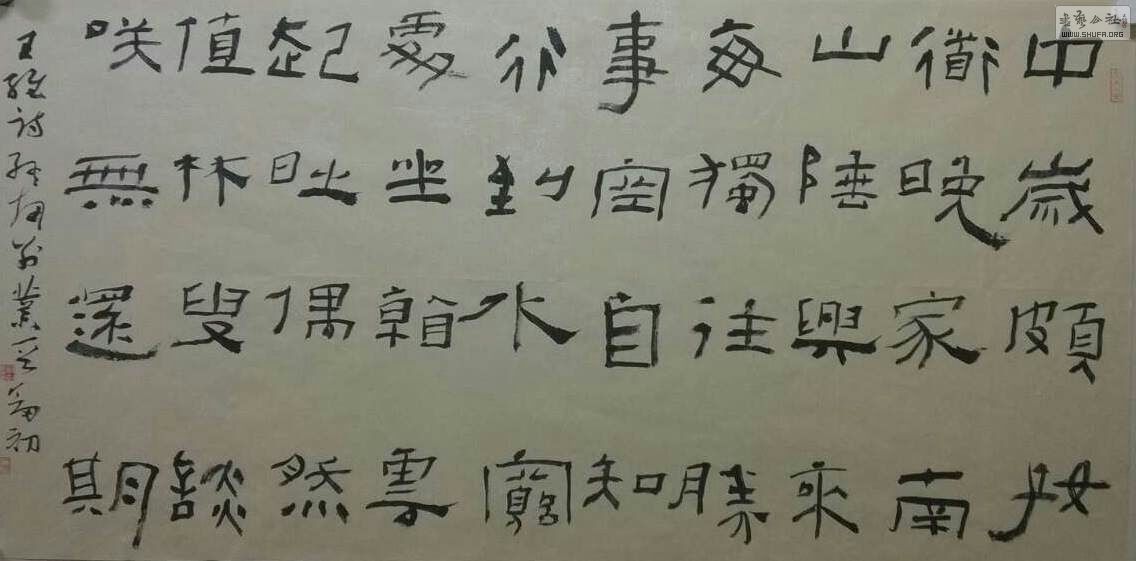 中歲頗好
衜晚家南
山陲興來
每獨往勝
事空自知
行到水窮
處坐看雲
起時偶然
值林叟談
咲無還期
王維詩終南別業
书艺公社
WWW.SHUFA.ORG